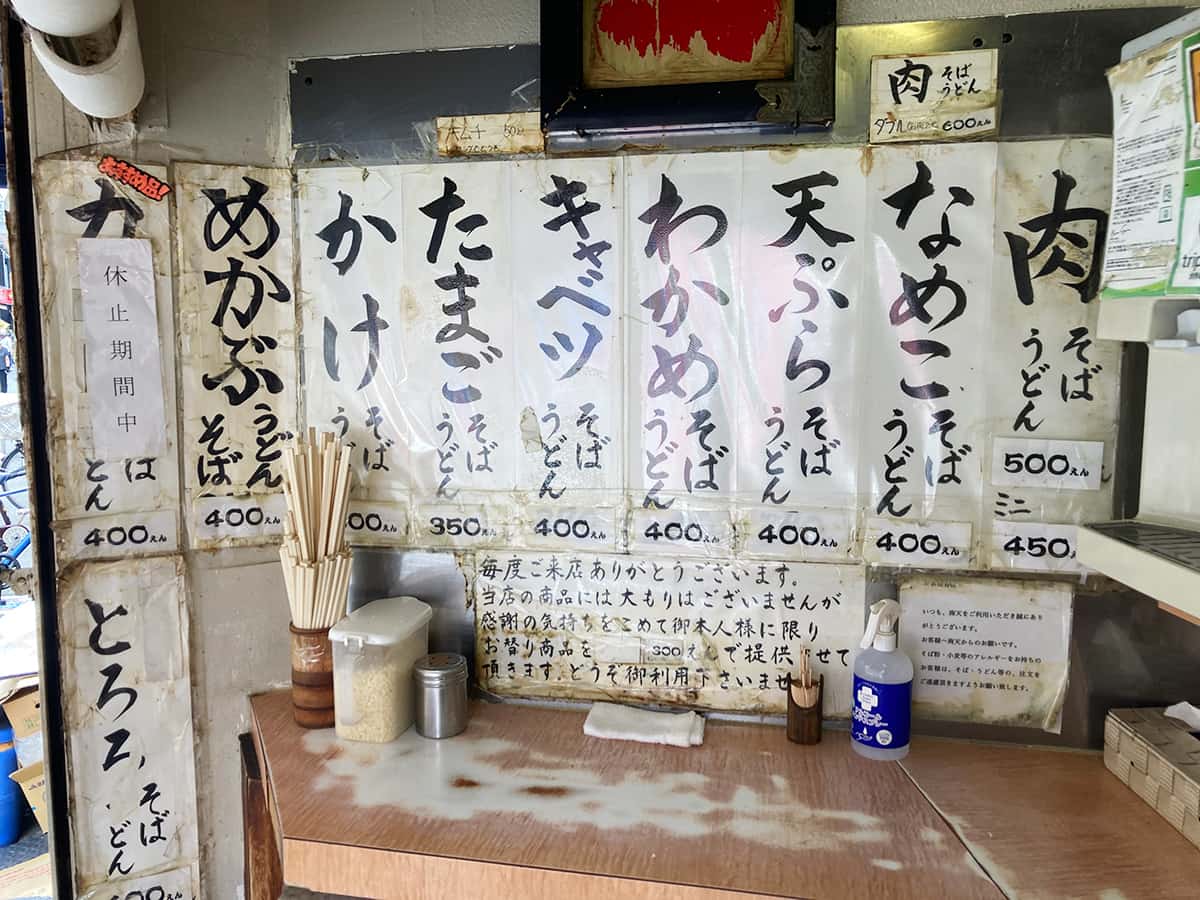 肉 そば
うどん
ダブル
600えん
キムチ 50えん
肉
そば
うどん
500えん
ミニ
450
なめこ
そば
うどん
400えん
天ぷら
そば
うどん
400えん
わかめ
そば
うどん
400えん
キャベツ
そば
うどん
400えん
たまご
そば
うどん
350えん
かけ
そば
うどん
00えん
めかぶ
うどん
そば
400えん
おすすめ品!
休止期間中
ば
どん
400えん
とろろ
そば
うどん
400えん
毎度ご来店ありがとうございます。
当店の商品には大もりはございませんが
感謝の気持ちをこめて御本人様に限り
お替り商品を 300えんで提供させて
頂きます。どうぞ御利用下さいませ
いつも、南天をご利用いただき誠にあり
がとうございます。
お客様へ南天からのお願いです。
そば粉・小麦等のアレルギーをお持ちの
お客様は、そば・うどん等の、注文を
ご遠慮頂きますようお願い致します。